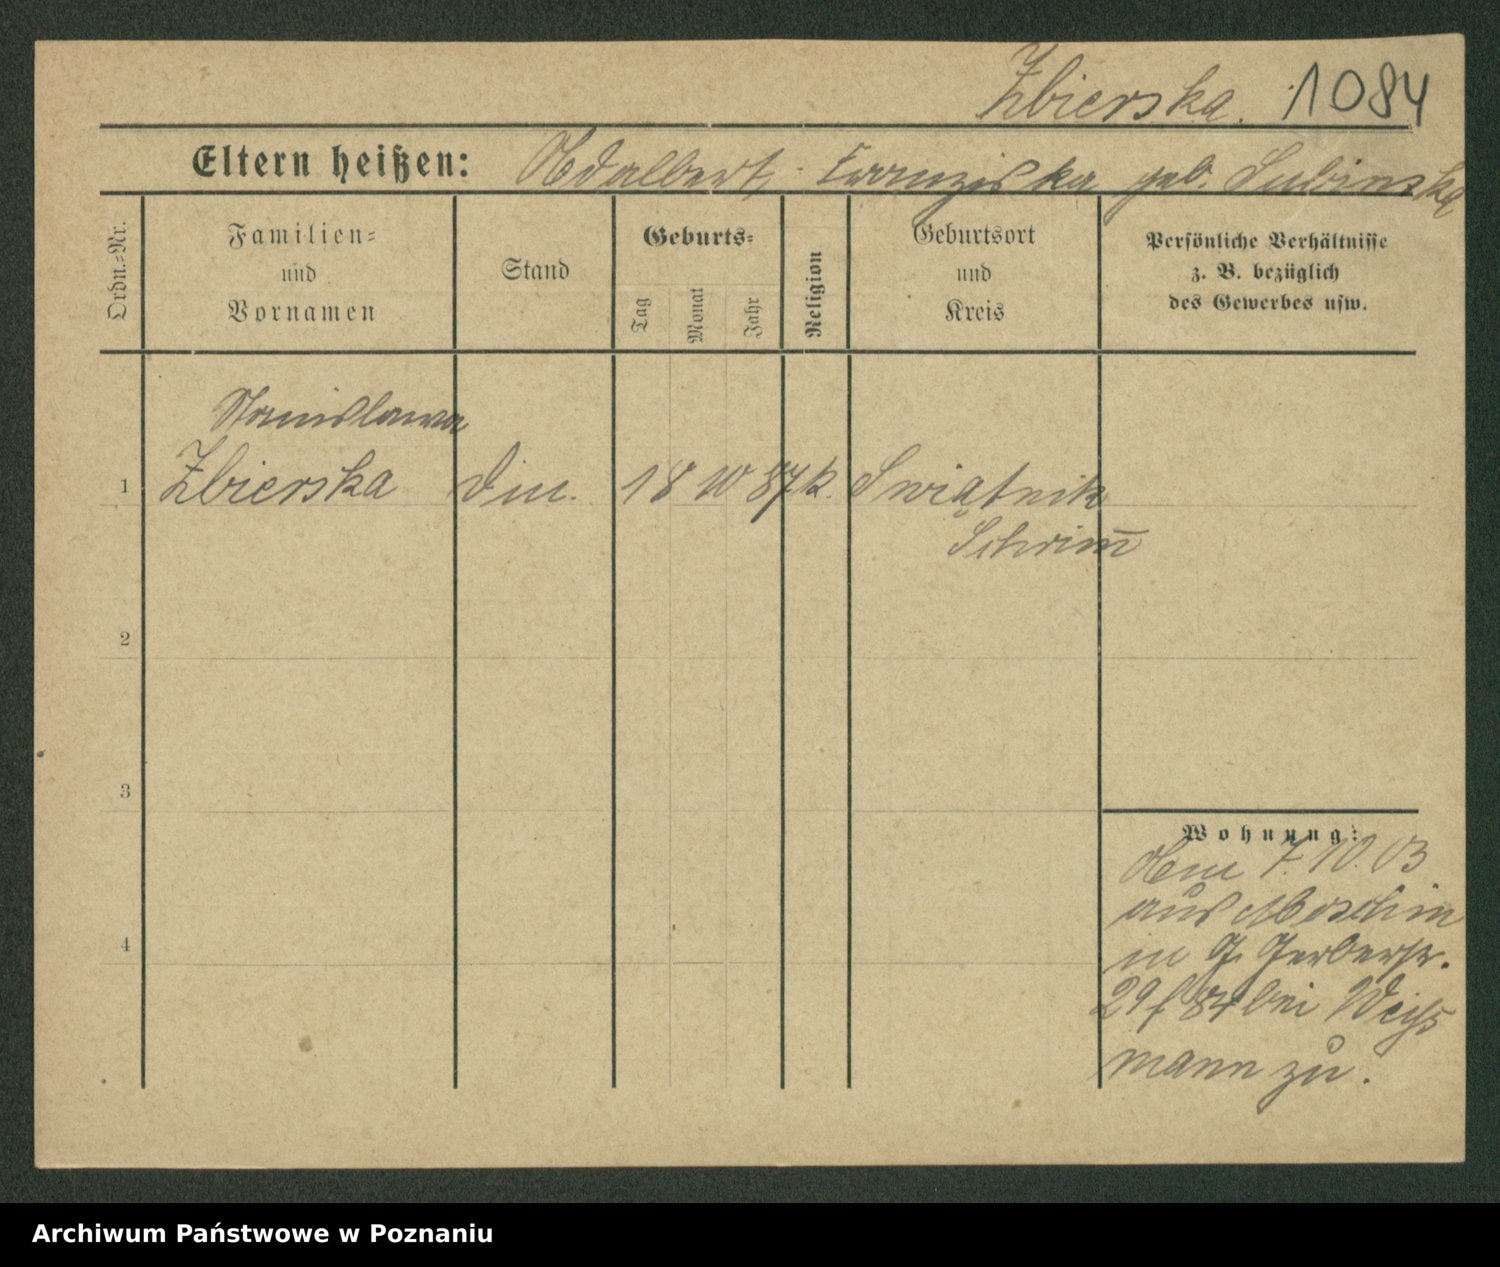 Zbierska. 1084
Eltern heißen: Adalbert, Franziska geb. Lubinska
Ordn.-Nr.
Familien-
und
Vornamen
Stand
Geburts-
Tag
Monat
Jahr
Religion
Geburtsort
und
Kreis
Persönliche Verhältnisse
z. B. bezüglich
des Gewerbes usw.
Stanislawa
1 Zbierska 18 10 87 k. Swiątnik
Schrim̅
2
3
4
Wohnung:
7. 10. 03
aus Moschin
in G. Gerberstr.
29 bei Weiß
mann zu.
Archiwum Państwowe w Poznaniu